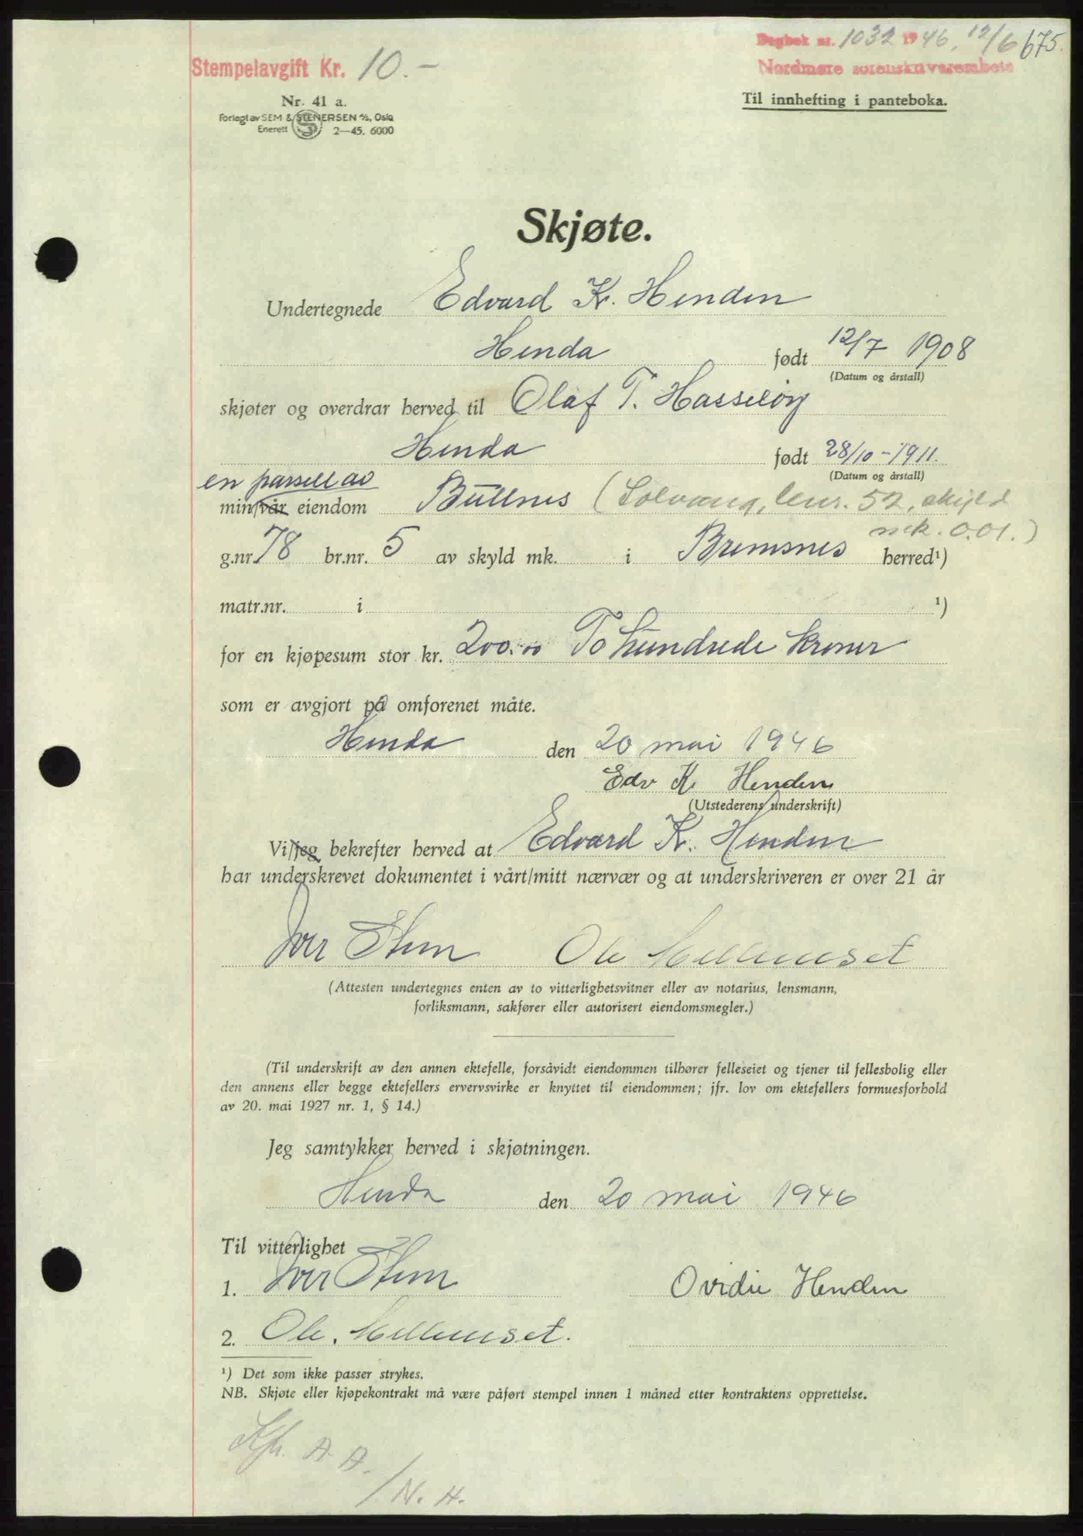 Dagbok nr. 1032 1946, 12/6 675.
Nordmøre sorenskriverembete
Stempelavgift Kr. 10.-
Nr. 41 a.
Forlegt av SEM & STENERSEN A/S, Oslo
Enerett S 2—45. 6000
Til innhefting i panteboka.
Skjøte.
Undertegnede Edvard K. Henden
Henda født 12/7 1908
(Datum og årstall)
skjøter og overdrar herved til Olaf T. Hasseløy
Henda født 28/10-1911.
(Datum og årstall)
en parsell av
min/vår eiendom Bullnes (Solvang, lnr. 52, skyld
mk. 0.01.)
g.nr. 78 br.nr. 5 av skyld mk. i Bremsnes herred¹)
matr.nr. i ¹)
for en kjøpesum stor kr. 200.00 To hundrede kroner
som er avgjort på omforenet måte.
Henda den 20 mai 1946
Edv K. Henden
(Utstederens underskrift)
Vi/jeg bekrefter herved at Edvard K. Henden
har underskrevet dokumentet i vårt/mitt nærvær og at underskriveren er over 21 år
Iver Stem Ole Mellemset
(Attesten undertegnes enten av to vitterlighetsvitner eller av notarius, lensmann,
forliksmann, sakfører eller autorisert eiendomsmegler.)
(Til underskrift av den annen ektefelle, forsåvidt eiendommen tilhører felleseiet og tjener til fellesbolig eller
den annens eller begge ektefellers ervervsvirke er knyttet til eiendommen; jfr. lov om ektefellers formuesforhold
av 20. mai 1927 nr. 1, § 14.)
Jeg samtykker herved i skjøtningen.
Henda den 20 mai 1946
Til vitterlighet
1. Iver Stem Ovidie Henden
2. Ole. Mellemset.
¹) Det som ikke passer strykes.
NB. Skjøte eller kjøpekontrakt må være påført stempel innen 1 måned etter kontraktens opprettelse.
A. A.
/N. H.